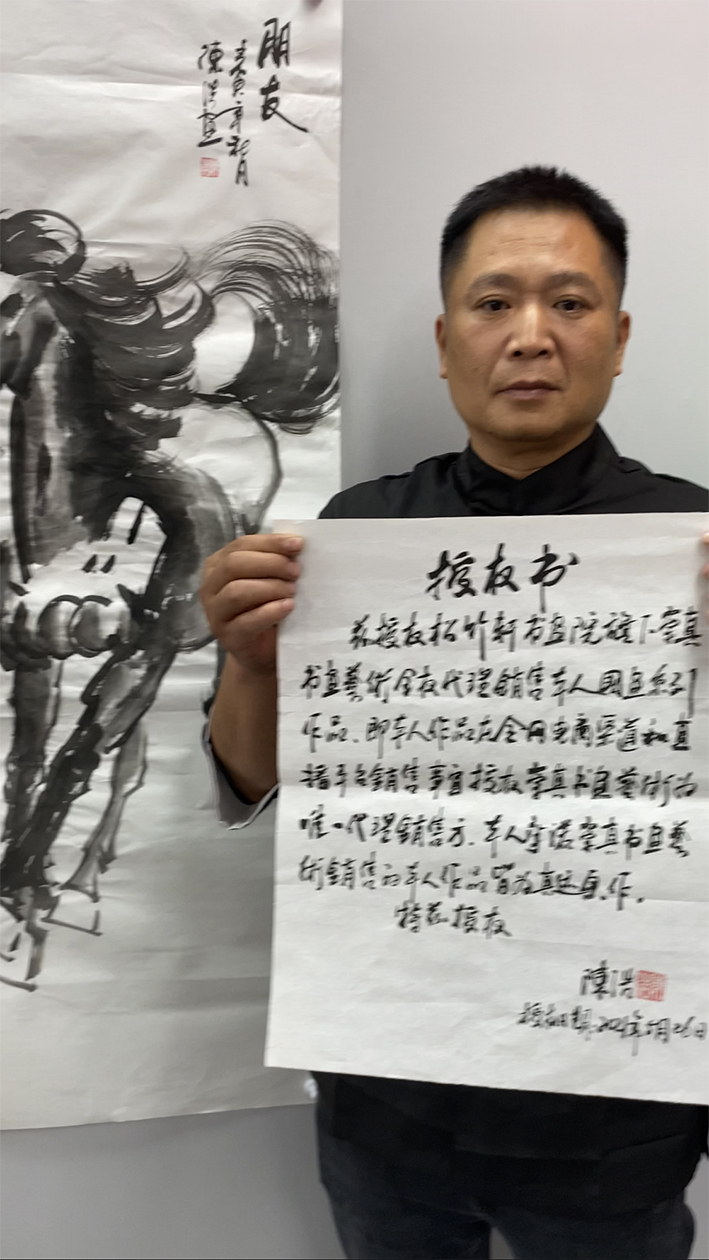 朋友
陳浩畫
授权书
兹授权松竹轩书画院旗下崇真
书画藝術全权代理銷售本人国画系列
作品、即本人作品在全网电商渠道和直
播平台銷售事宜授权崇真书画藝術为
唯一代理銷售方、本人承诺崇真书画藝
術銷售的本人作品皆为真迹原作。
特兹授权
陳浩
授权日期:2024年5月26日